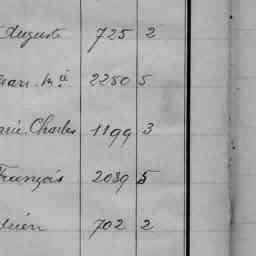 Auguste 725 2
Jean M.ª 2280 5
Charles 1199 3
François 2039 5
702 2